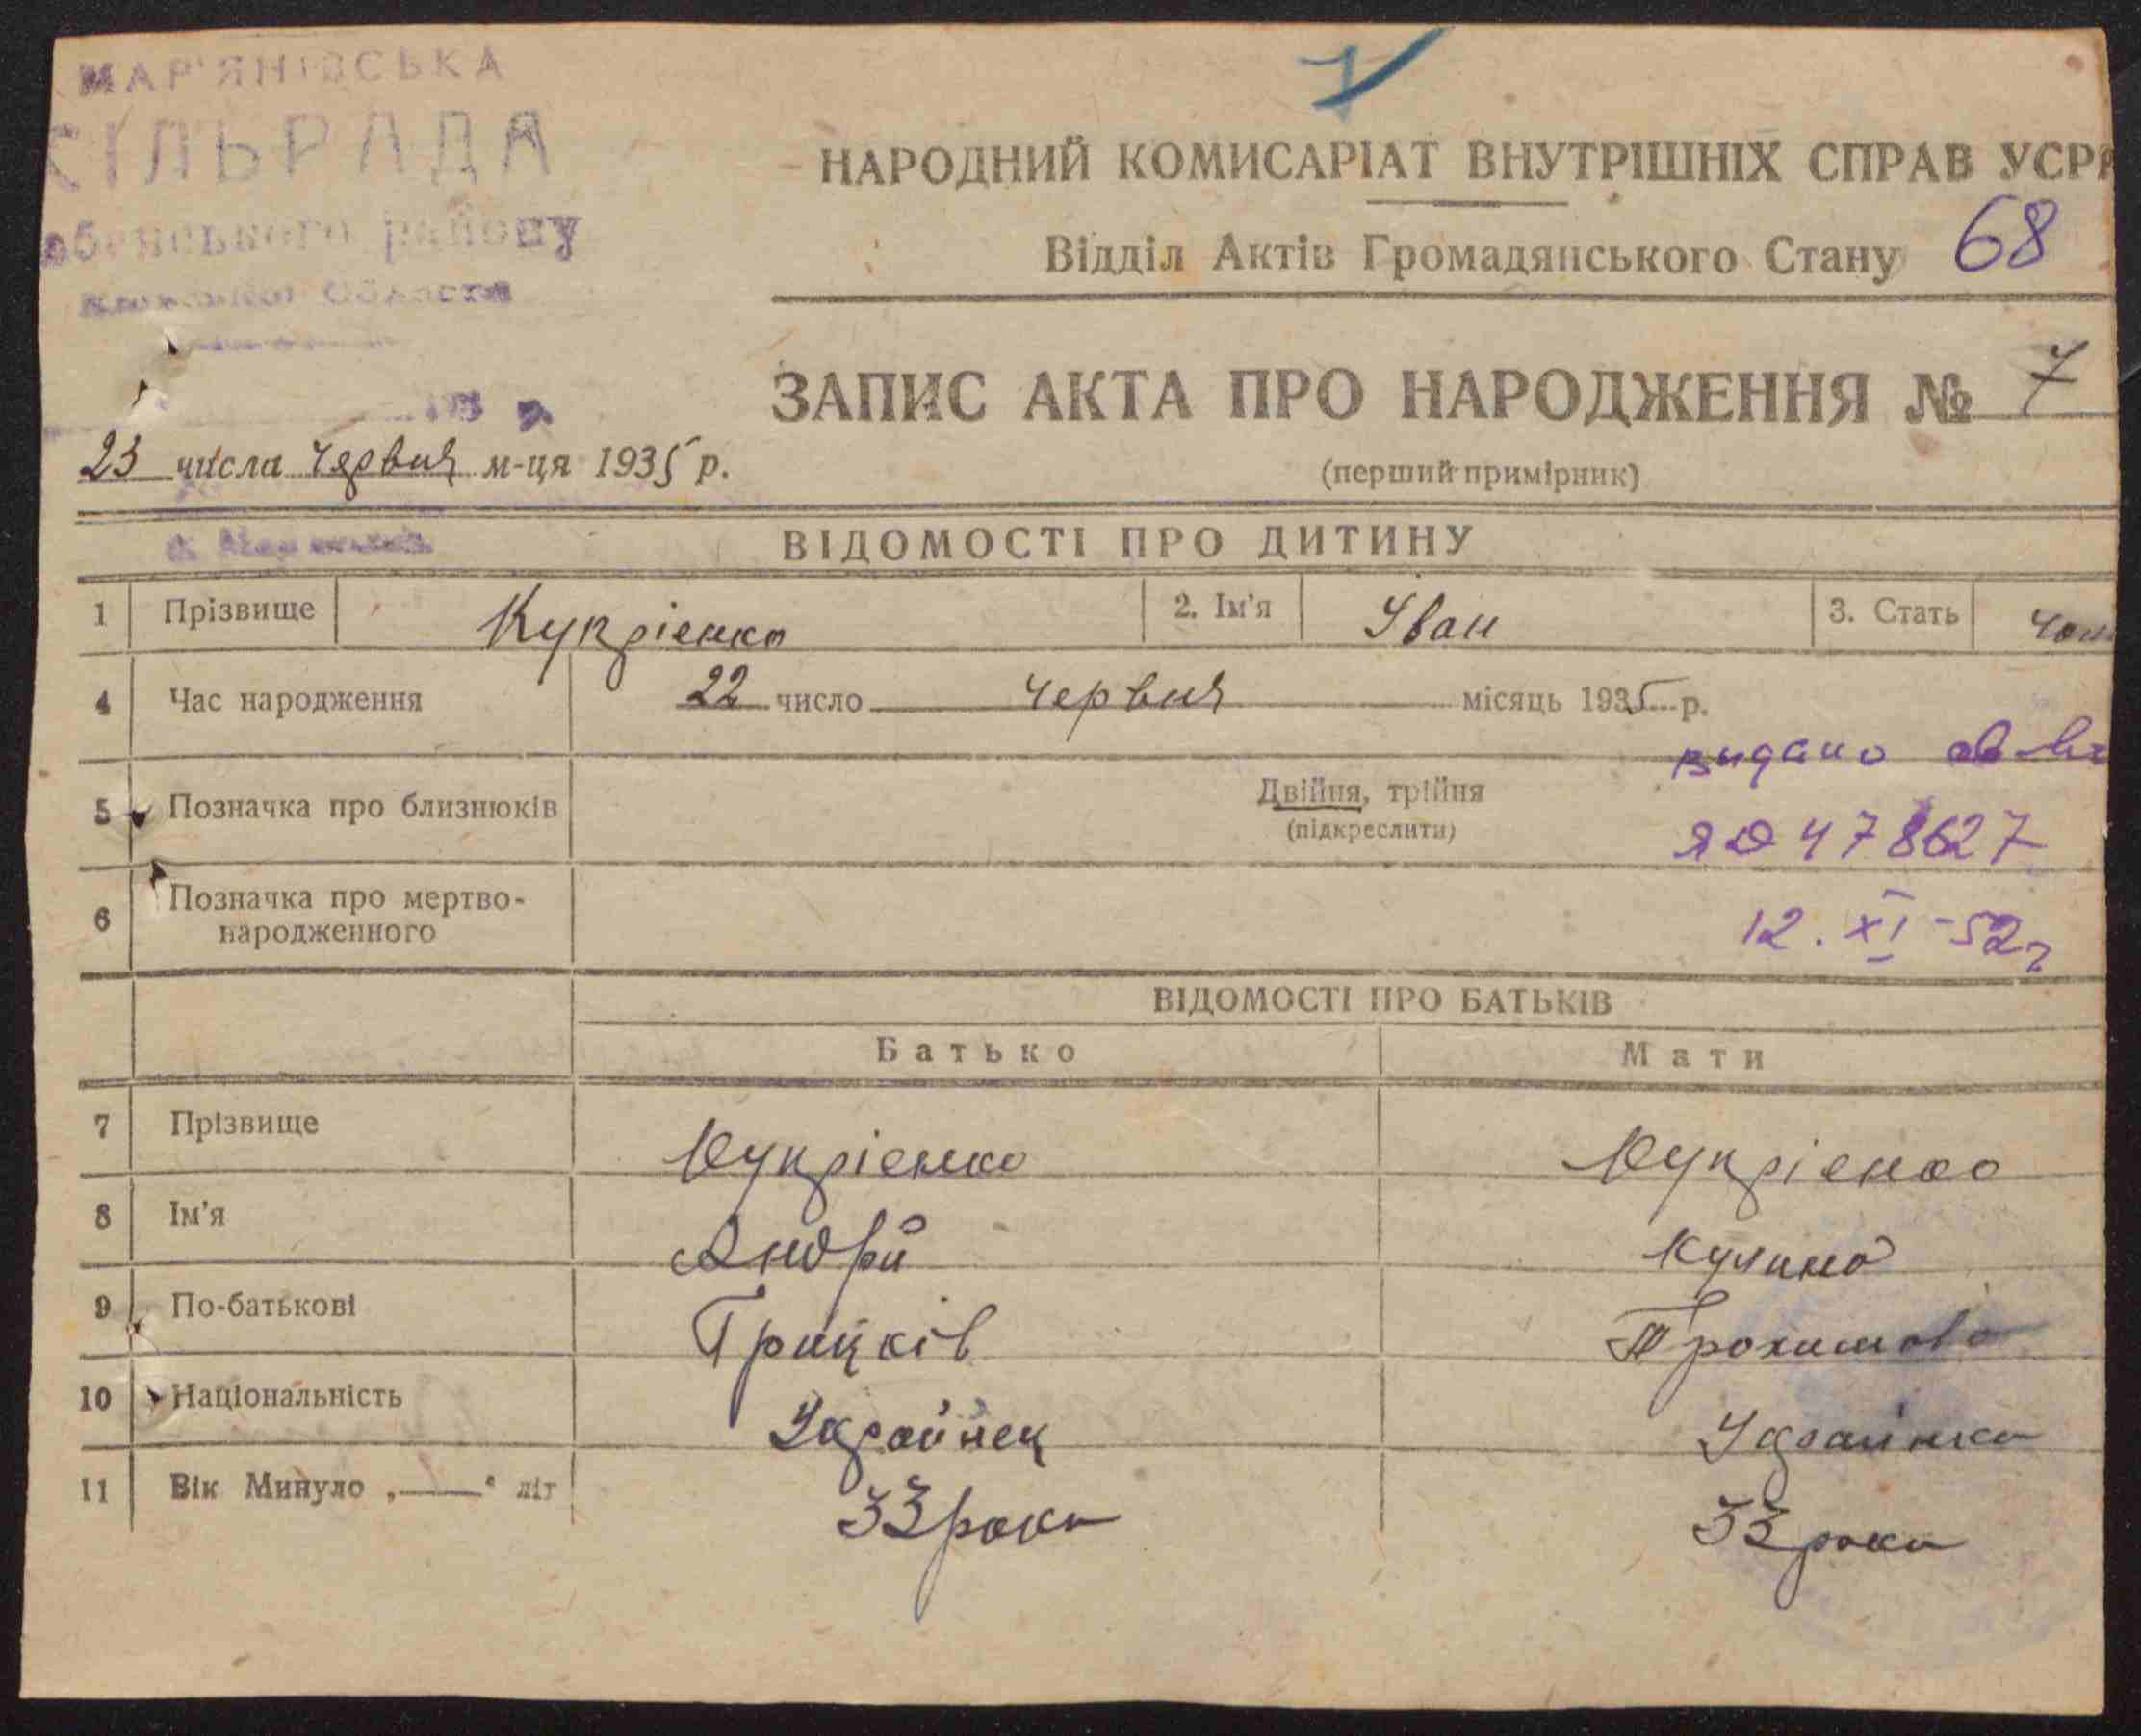 МАР'ЯНІВСЬКА
СІЛЬРАДА
району
Області
НАРОДНИЙ КОМИСАРІАТ ВНУТРІШНІХ СПРАВ УСРР
Відділ Актів Громадянського Стану 68
ЗАПИС АКТА ПРО НАРОДЖЕННЯ № 7
23 числа Червня м-ця 1935 р.
(перший примірник)
ВІДОМОСТІ ПРО ДИТИНУ
1 Прізвище Купрієнко 2. Ім'я Іван 3. Стать Чол
4 Час народження 22 число Червня місяць 1935 р.
видано
5 Позначка про близнюків Двійня, трійня
(підкреслити)
ЯЮ 478627
6 Позначка про мертво-
народженного
12. XI-52г
ВІДОМОСТІ ПРО БАТЬКІВ
Батько Мати
7 Прізвище Купрієнко Купрієнко
8 Ім'я Андрій Кулина
9 По-батькові Грицків Трохимова
10 Національність Українец Українка
11 Вік Минуло „—“ літ 33 роки 33 роки